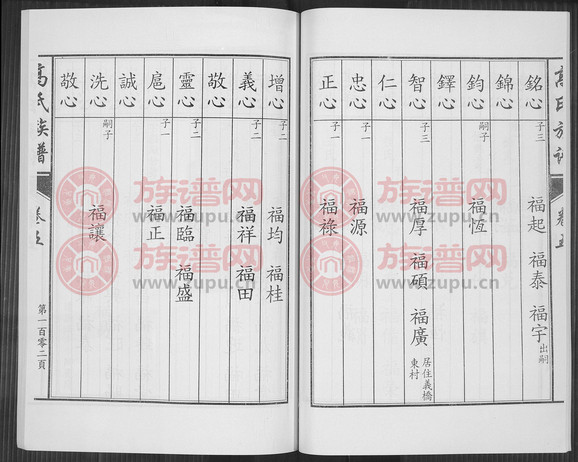 銘心 子三 福起 福泰 福宇 出嗣
錦心
鈞心 嗣子 福恆
鐸心
智心 子三 福厚 福碩 福廣 居住義橋東村
仁心
忠心 子一 福源
正心 子一 福祿
增心 子二 福均 福桂
義心 子二 福祥 福田
敬心
靈心 子二 福臨 福盛
扈心 子一 福正
誠心
洗心 嗣子 福讓
敬心
高氏族譜
卷五
第一百零二頁
族谱网
www.zupu.cn
族谱网
www.zupu.cn
族谱网
www.zupu.cn
族谱网
www.zupu.cn